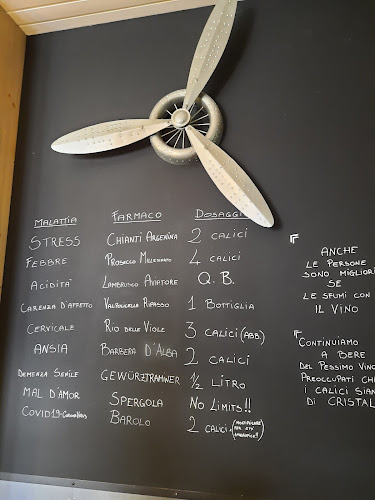 MALATTIA FARMACO DOSAGGIO
STRESS CHIANTI ARGENINA 2 CALICI
FEBBRE PROSECCO MILLESIMATO 4 CALICI
ACIDITÀ LAMBRUSCO AVIATORE Q.B.
CARENZA D'AFFETTO VALPOLICELLA RIPASSO 1 BOTTIGLIA
CERVICALE RIO DELLE VIOLE 3 CALICI (ABB.)
ANSIA BARBERA D'ALBA 2 CALICI
DEMENZA SENILE GEWÜRZTRAMINER ½ LITRO
MAL D'AMOR SPERGOLA NO LIMITS!!
COVID19 BAROLO 2 CALICI
ANCHE
LE PERSONE
SONO MIGLIORI
SE
LE SFUMI CON
IL VINO
CONTINUIAMO
A BERE
DEL PESSIMO VINO
PREOCCUPATI CHE
I CALICI SIANO
DI CRISTAL